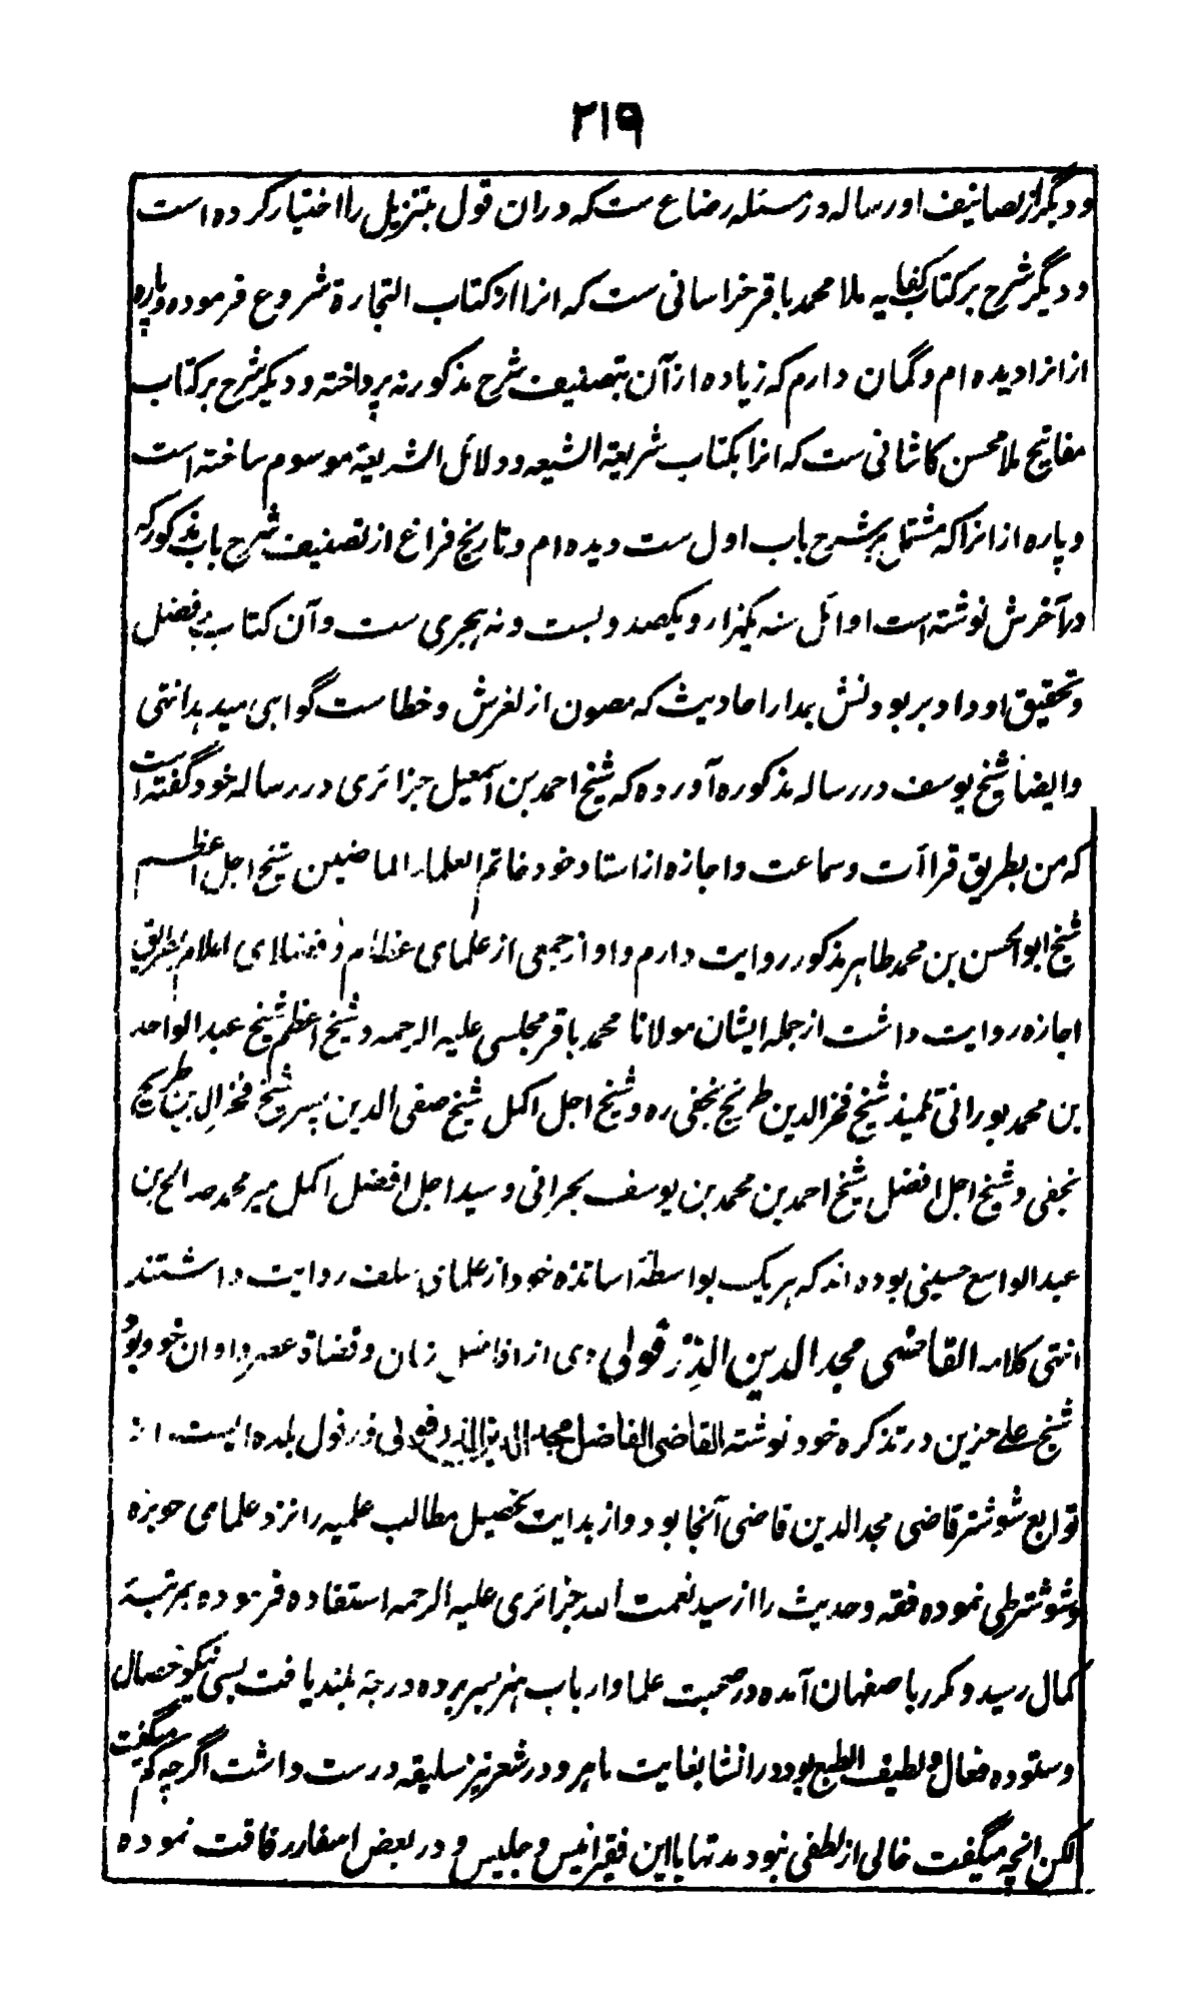 ٢١٩
و دیگر از تصانیف او رساله در مسئله رضاع ست که دران قول بتنزیل را اختیار کرده است
و دیگر شرح بر کتاب کفایه ملا محمد باقر خراسانی ست که انرا از کتاب التجارة شروع فرموده و پاره
از انرا دیده ام و گمان دارم که زیاده از آن بتصنیف شرح مذکور نه پرداخته و دیگر شرح بر کتاب
مفاتیح ملا محسن کاشانی ست که انرا بکتاب شریعة الشیعه و دلائل الشریعة موسوم ساخته است
و پاره از انرا که مشتمل بر شرح باب اول ست دیده ام و تاریخ فراغ از تصنیف شرح باب مذکور که
در آخرش نوشته است اوائل سنه یکهزار و یکصد و بست و نه هجری ست و آن کتاب بر فضل
و تحقیق او و ادبر بودنش بمدار احادیث که مصون از لغزش و خطا ست گواهی میدهد انتهی
و ایضا شیخ یوسف در رساله مذکوره آورده که شیخ احمد بن اسمعیل جزائری در رساله خود گفته است
که من بطریق قراآت و سماعت و اجازه از استاد خود خاتم العلماء الماضین شیخ اجل اعظم
شیخ ابوالحسن بن محمد طاهر مذکور روایت دارم و او از جمعی از علمای عظام و فضلای اعلام بطریق
اجازه روایت داشت از جمله ایشان مولانا محمد باقر مجلسی علیه الرحمه و شیخ اعظم شیخ عبد الواحد
بن محمد بورانی تلمیذ شیخ فخر الدین طریح نجفی ره و شیخ اجل اکمل شیخ صفی الدین پسر شیخ فخر الدین طریح
نجفی و شیخ اجل افضل شیخ احمد بن محمد بن یوسف بحرانی و سید اجل افضل اکمل میر محمد صالح بن
عبد الواسع حسینی بوده اند که هر یک بواسطهٔ اساتذه خود از علمای سلف روایت داشتند
انتهی کلامه القاضی مجد الدین الدزفولی وی از افاضل زمان و قضاة عصر و اوان خود بود
شیخ علی حزین در تذکره خود نوشته القاضی الفاضل مجد الدین الدزفولی دزفول بلده ایست از
توابع شوشتر قاضی مجد الدین قاضی آنجا بود و از بدایت تحصیل مطالب علمیه را نزد علمای حویزه
و شوشتر طی نموده فقه و حدیث را از سید نعمت الله جزائری علیه الرحمه استفاده فرموده بمرتبهٔ
کمال رسید و مکرر باصفهان آمده در صحبت علما و ارباب هنر بسر برده درجهٔ بلند یافت بسی نیکو خصال
و ستوده فعال و لطیف الطبع بود در انشا بغایت ماهر و در شعر نیز سلیقه درست داشت اگرچه کم میگفت
لکن انچه میگفت خالی از لطفی نبود مدتها با این فقیر انیس و جلیس و در بعض اسفار رفاقت نموده